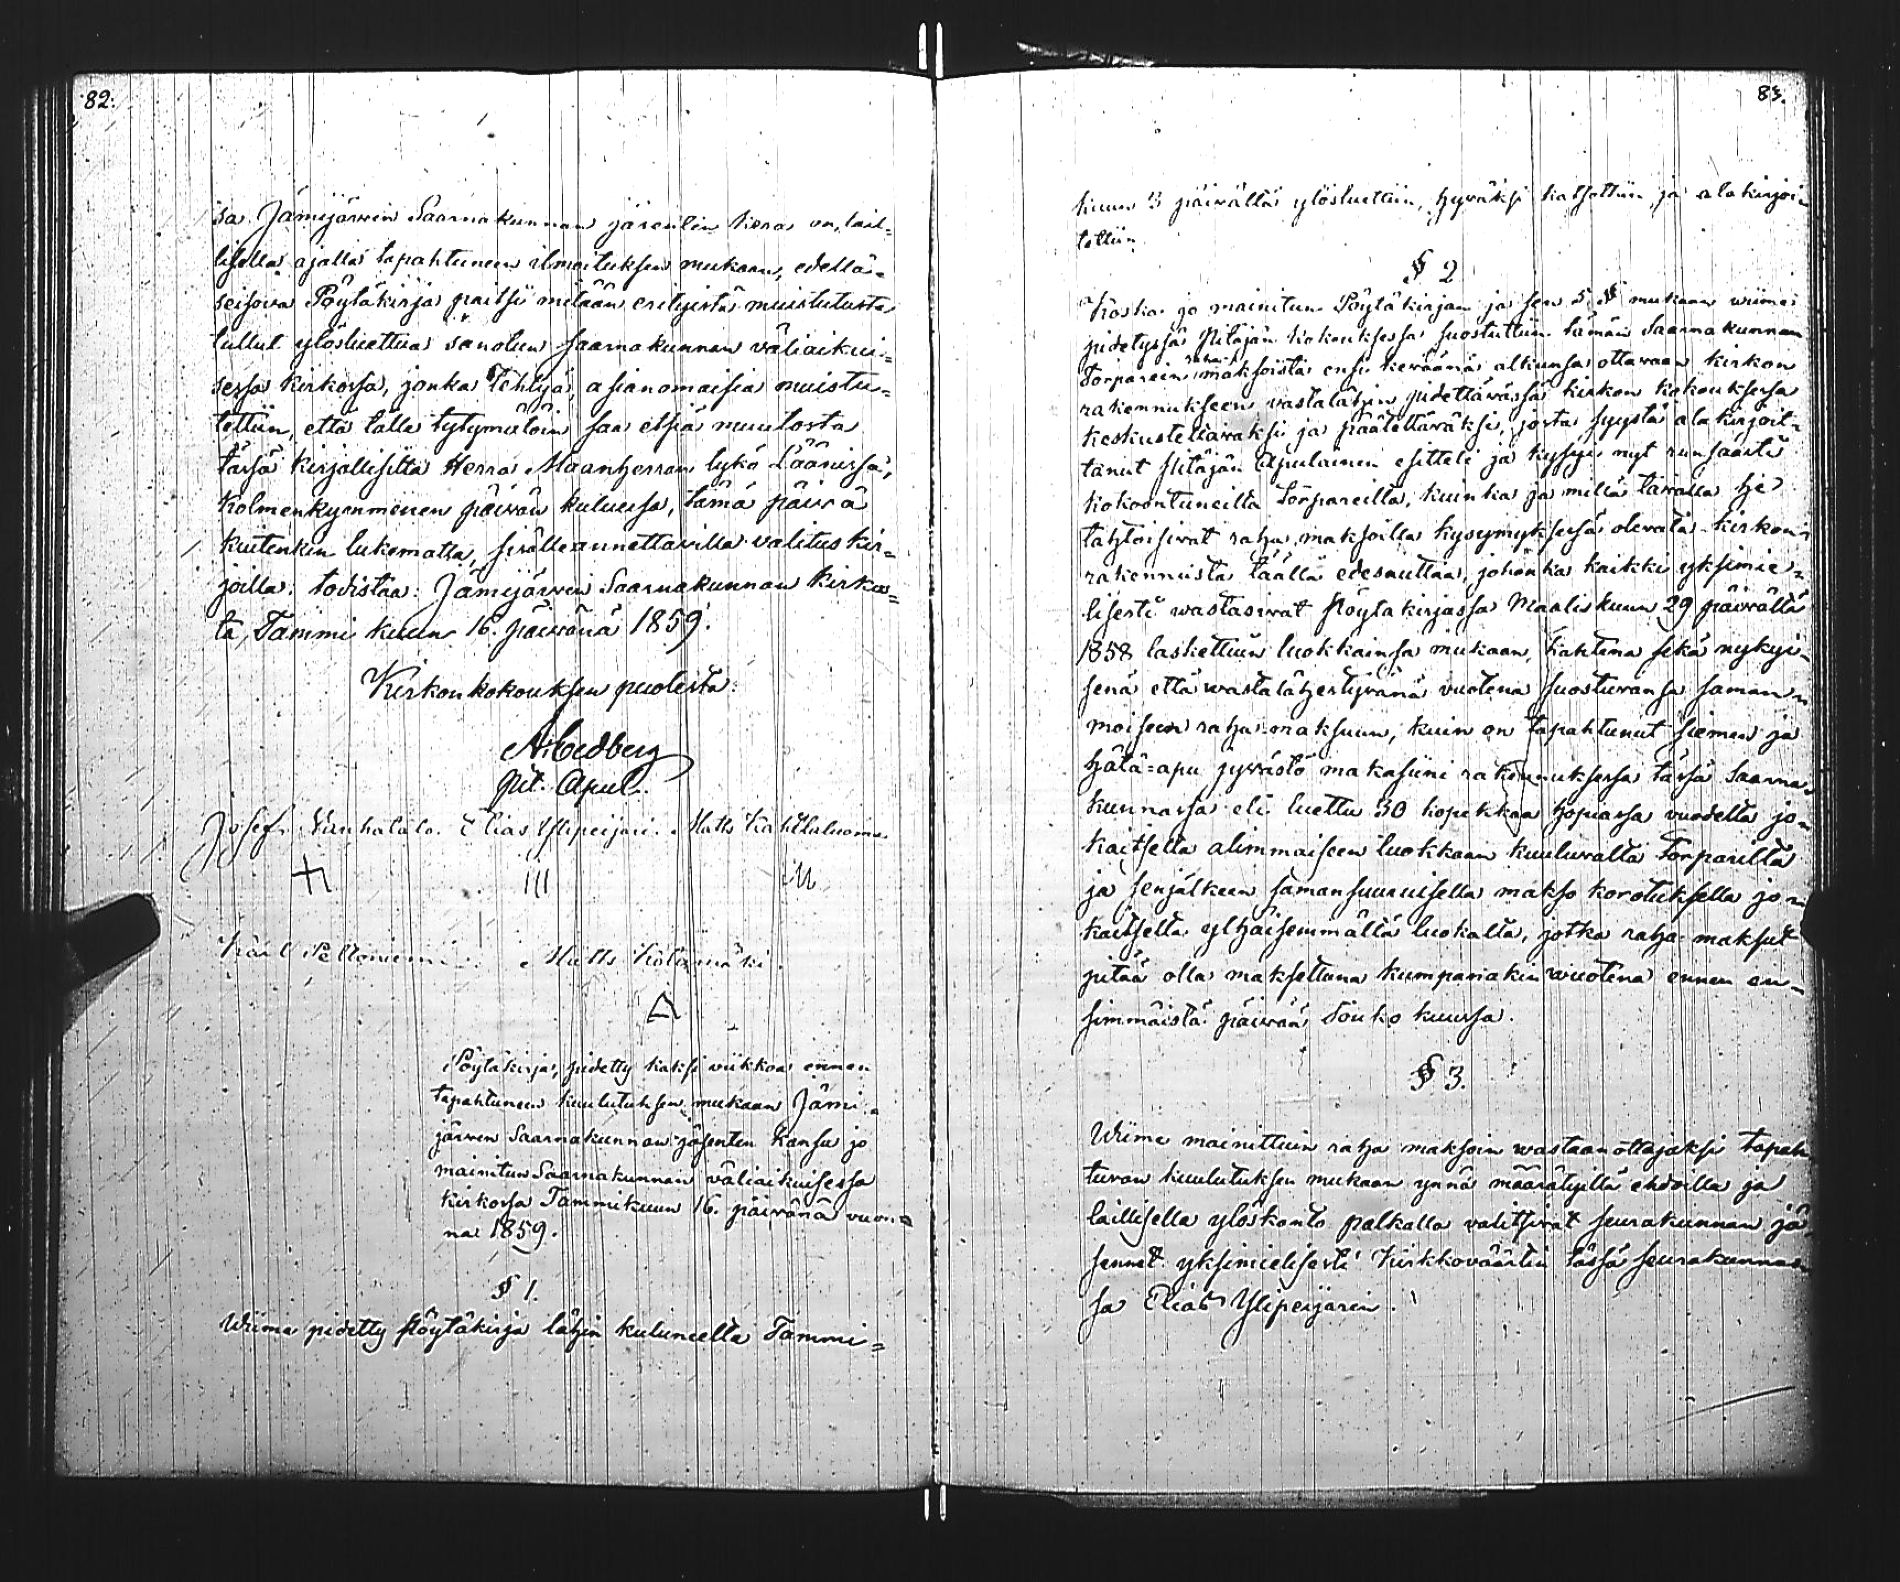 82.
sa Jämijärwin Saarnakunnan jäsenten kera on, lail=
lisella ajalla tapahtuneen ilmoituksen mukaan, edellä=
seisova Pöytäkirja paitsi mitään erityistä muistutusta
tullut ylösluettua sanotun saarnakunnan väliaikui=
sessa kirkossa, jonka tehtyä, asianomaisia muistu=
tettiin, että tälle tytymätöin saa etsiä muutosta
tässä kirjallisilta Herra Maanherran tykö Läänissä,
Kolmenkymmenen päivän kuluessa, tämä päivä
kuitenkin lukematta, sisälleannettavilla valituskir=
joilla; todistaa: Jämijärwen Saarnakunnan kirkos=
ta, Tammi kuun 16. päivänä 1859.
Kirkonkokouksen puolesta:
A. Cedberg
Pit. Apul.
Josef Vanhatalo. Elias Ylipeijari. Matts Kahilaluoma
III M
Karl Peltoniemi Matts Kotimäki.
Pöytäkirja, pidetty kaksi viikkoa ennen
tapahtuneen kuulutuksen mukaan Jämi=
järwen Saarnakunnan jäsenten kansa jo
mainitun Saarnakunnan väliaikuisessa
kirkossa Tammikuun 16. päivänä vuon=
na 1859.
§ 1.
Wiime pidetty Pöytäkirja lähin kuluneella Tammi=
83.
kuun 3 päivällä ylösluettiin, hyväksi katsottiin ja alakirjoi=
tettiin.
§ 2
Koska jo mainitun Pöytäkirjan ja sen 5 § mukaan wiime
pidetyssä Pitäjän kokouksessa suostuttiin tämän Saarnakunnan
Torparein raha maksoista ensi keväänä alkunsa ottavaan kirkon
rakennukseen vastalähin pidettävässä kirkon kokouksessa
keskusteltavaksi ja päätettäväksi, josta syystä alakirjoit=
tanut Pitäjän Apulainen esitteli ja kysyi nyt runsaasti
kokoontuneilta Torpareilta, kuinka ja millä tavalla he
tahtoisivat raha maksoilla kysymyksessä olevata kirkon=
rakennusta täällä edesauttaa, johonka kaikki yksimie=
lisesti wastasivat Pöytäkirjassa Maaliskuun 29 päivältä
1858 laskettuin luokkainsa mukaan, kahtena sekä nykyi=
senä että wastalähestyvänä vuotena suostuvansa saman=
moiseen raha maksuun, kuin on tapahtunut siemen ja
hätä=apu jyvästö makasiini rakennuksessa tässä Saarna=
kunnassa eli luettu 30 kopekkaa hopiassa vuodelta jo=
kaitselta alimmaiseen luokkaan kuuluvalta Torparilta
ja senjälkeen samansuuruisella makso korotuksella jo=
kaitselta ylhäisemmältä luokalta, jotka raha maksut
pitää olla maksettuna kumpanakin wuotena ennen en=
simmäistä päivää Touko kuussa.
§ 3.
Wiime mainittuin raha maksoin wastaanottajaksi tapah
tuvan kuulutuksen mukaan ynnä määrätyillä ehdoilla ja
laillisella ylöskanto palkalla valitsivat seurakunnan jä=
senet yksimielisesti Kirkkoväärtin tässä seurakunnas=
sa Elias Ylipeijarin.